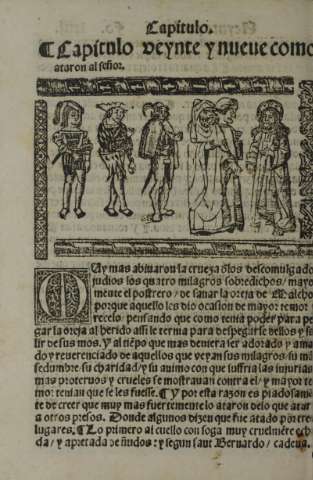 Capitulo.
¶ Capitulo veynte y nueve como
ataron al señor.
MUy mas abivaron la crueza dlos descomulgado
judios los quatro milagros sobredichos/ mayo
mente el postrero/ de sanar la oreja de Malcho
porque aquello les dio ocasion de mayor temor
recelo: pensando que como tenia poder para pe
gar la oreja al herido assi le ternia para despegirse dellos y sa
lir de sus mos. Y al tiẽpo que mas deviera ser adorado y ama
do y reverenciado de aquellos que veyan sus milagros/ su mã
sedumbre/ su charidad/ y su animo con que suffria las injurias
mas protervos y crueles se mostravan contra el/ y mayor te
mor: tenian que se les fuesse. ¶ Y por esta razon es piadosamẽ
te de creer que muy mas fuertemente lo ataron delo que atar
a otros presos. Donde algunos dizen que fue atado por tres
lugares. ¶ Lo primero al cuello con soga muy cruelmẽte
da/ y apretada de ñudos: y segun sant Bernardo/ cadena.